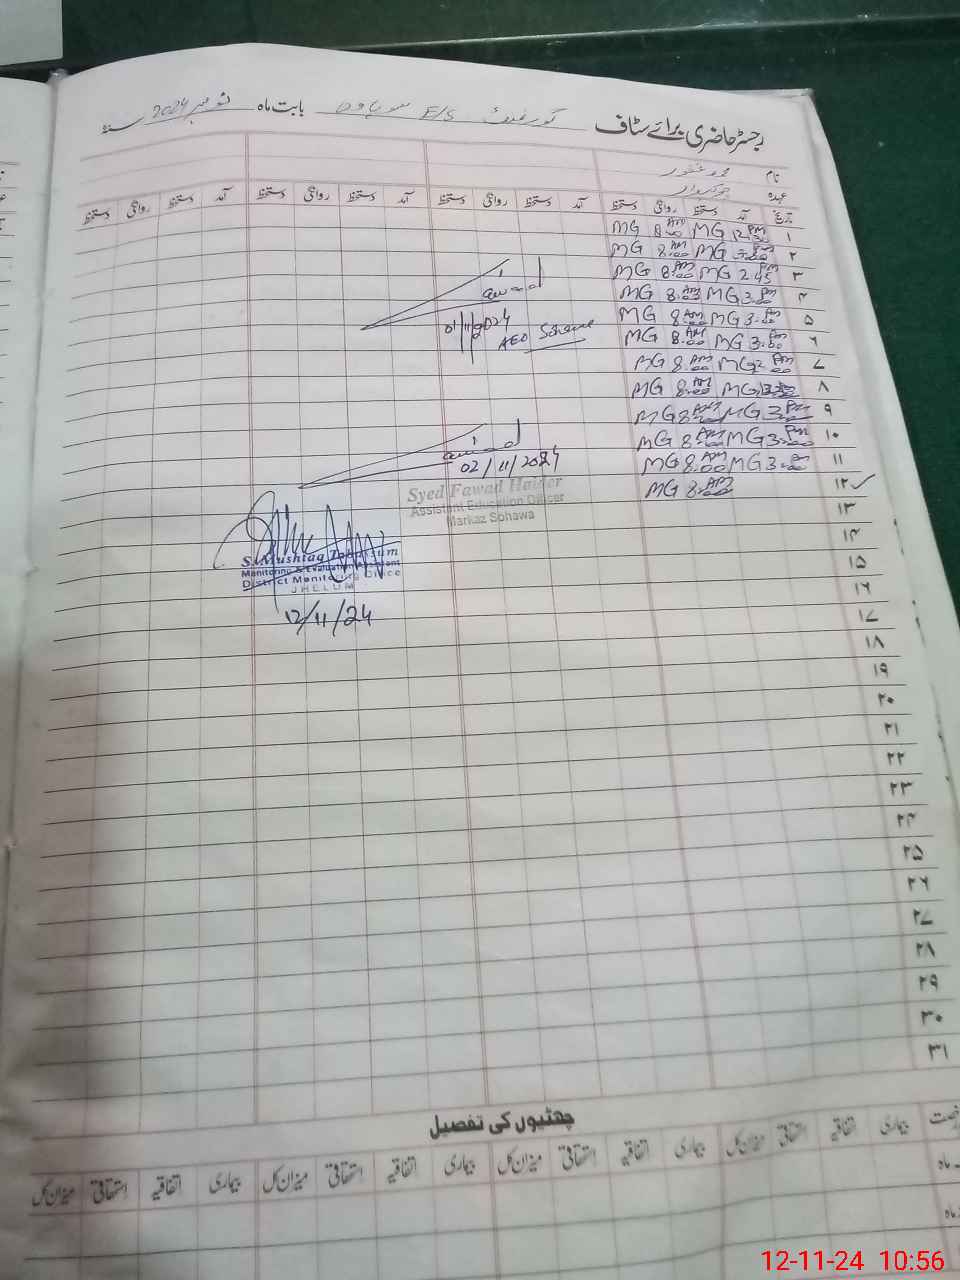 رجسٹر حاضری برائے سٹاف گورنمنٹ E/S سوہاوہ بابت ماہ نومبر 2024 سنہ
نام محمد غفور
عہدہ چوکیدار
تاریخ آمد دستخط روانگی دستخط آمد دستخط روانگی دستخط آمد دستخط روانگی دستخط آمد دستخط روانگی دستخط
۱ MG 8:00 AM MG 12:30 PM
۲ MG 8:00 AM MG PM
۳ MG 8:00 AM MG 2:45 PM
۴ MG 8:03 AM MG 3:00 PM
۵ MG 8:00 AM MG 3:00 PM
۶ MG 8:00 AM MG 3:00 PM
۷ MG 8:00 AM MG PM
۸ MG 8:00 AM MG
۹ MG 8:00 AM MG 3:00 PM
۱۰ MG 8:00 AM MG 3:00 PM
۱۱ MG 8:00 AM MG 3:00 PM
۱۲ MG 8:00 AM
۱۳
۱۴
۱۵
۱۶
۱۷
۱۸
۱۹
۲۰
۲۱
۲۲
۲۳
۲۴
۲۵
۲۶
۲۷
۲۸
۲۹
۳۰
۳۱
01/11/2024
AEO Sohawa
02/11/2024
Syed Fawad Haider
Assistant Education Officer
Markaz Sohawa
S. Mushtaq Tabassum
Monitoring & Evaluation Assistant
District Monitoring Office
JHELUM
12/11/24
چھٹیوں کی تفصیل
بیماری اتفاقیہ استحقاقی میزان کل بیماری اتفاقیہ استحقاقی میزان کل بیماری اتفاقیہ استحقاقی میزان کل بیماری اتفاقیہ استحقاقی میزان کل
12-11-24 10:56